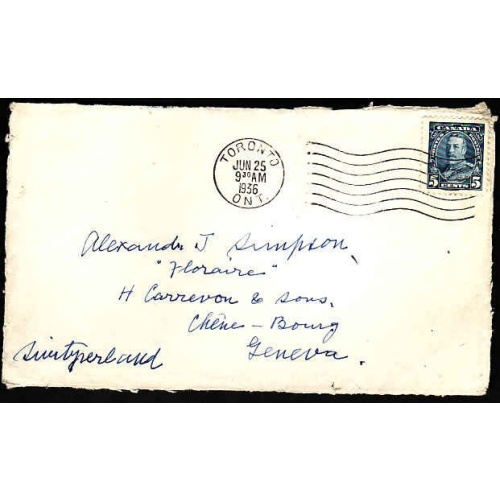 TORONTO
JUN 25
9 30 AM
1936
ONT.
CANADA
5 CENTS 5
Alexandr J Simpson,
"Floraire"
H Carrevon & Sons,
Chêne-Bourg
Geneva.
Switzerland